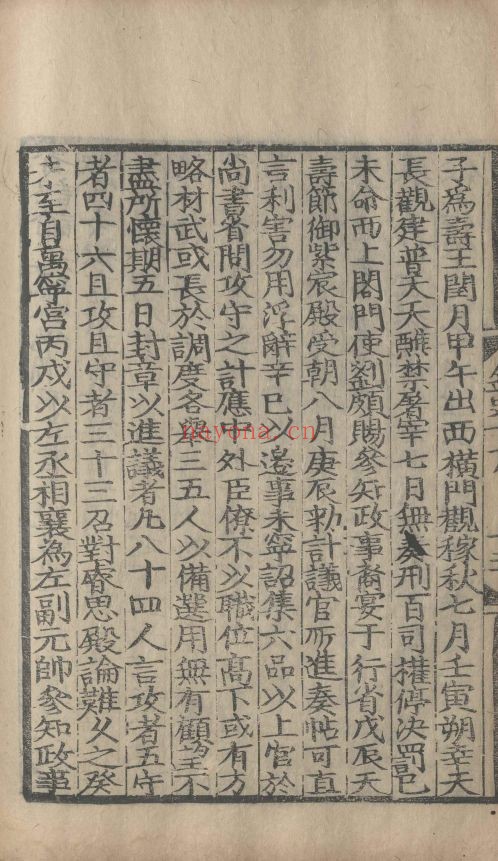 子爲壽王閏月甲午出西橫門觀稼秋七月壬寅朔幸天
長觀建普天大醮禁屠宰七日無奏刑百司權停決罰己
未命西上閤門使劉頗賜參知政事裔宴于行省戊辰天
壽節御紫宸殿受朝八月庚辰勑計議官所進奏帖可直
言利害勿用浮辭辛巳以邊事未寧詔集六品以上官於
尚書省問攻守之計應中外臣僚不以職位高下或有方
略材武或長於調度各舉三五人以備選用無有顧望不
盡所懷期五日封章以進議者凡八十四人言攻者五守
者四十六且攻且守者三十三召對睿思殿論難久之癸
未至自萬寧宮丙戌以左丞相襄爲左副元帥參知政事
nayona.cn